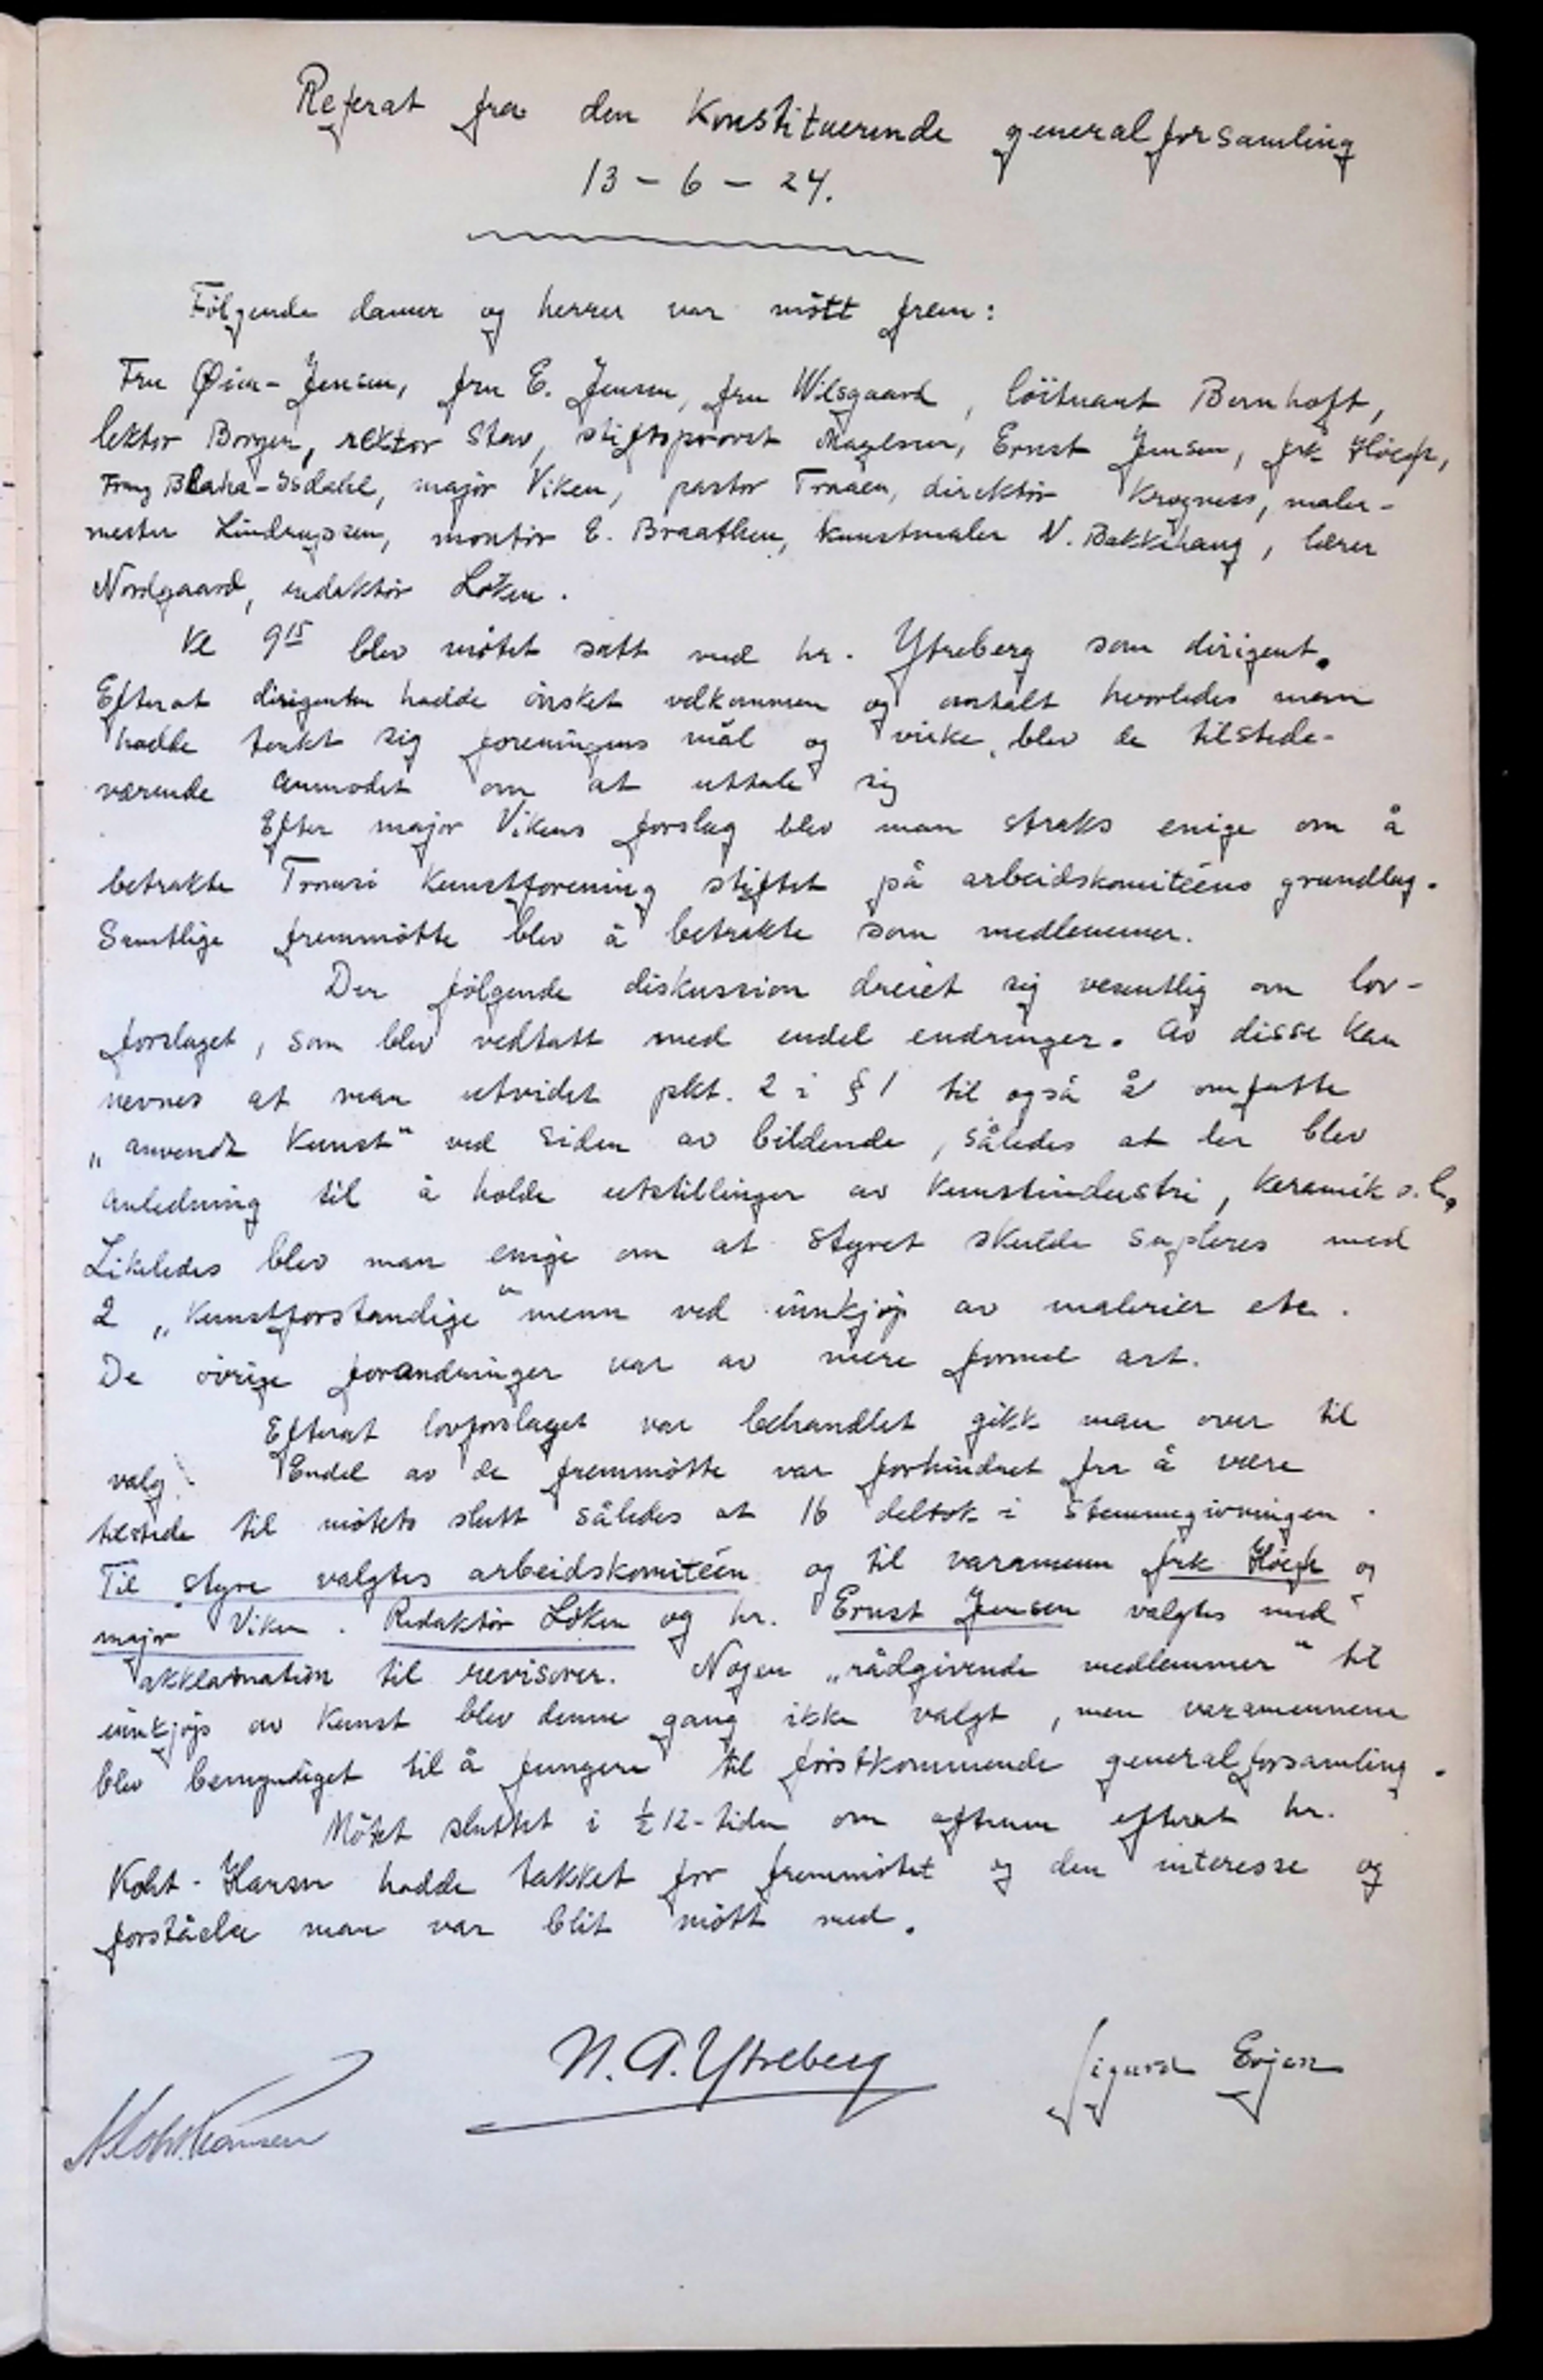 Referat fra den Konstituerende generalforsamling
13 – 6 – 24.
Følgende damer og herrer var mött frem:
Fru Øien-Jensen, fru E. Jensen, fru Wilsgaard, löitnant Bernhoft,
lektor Borgen, rektor Stav, stiftsprovst Magelsen, Ernst Jensen, frk Höegh,
Franz Blaha-Isdahl, major Viken, pastor Traaen, direktör Krogness, maler-
mester Lindrupsen, montör E. Braathen, kunstmaler N. Bakkehaug, lærer
Nordgaard, redaktör Löken.
Kl 9 15 blev mötet satt med hr. Ytreberg som dirigent.
Efterat dirigenten hadde önsket velkommen og omtalt hvorledes man
hadde tenkt sig foreningens mål og virke, blev de tilstede-
værende anmodet om at uttale sig
Efter major Vikens forslag blev man straks enige om å
betrakte Tromsö Kunstforening stiftet på arbeidskomitéens grundlag.
Samtlige fremmötte blev å betrakte som medlemmer.
Den fölgende diskussion dreiet sig vesentlig om lov-
forslaget, som blev vedtatt med endel endringer. Av disse kan
nevnes at man utvidet pkt. 2 i § 1 til også å omfatte
„anvendt Kunst" ved siden av bildende, således at der blev
anledning til å holde utstillinger av Kunstindustri, Keramik o.l.
Likeledes blev man enige om at styret skulde supleres med
2 „Kunstforstandige" menn ved innkjöp av malerier etc.
De övrige forandringer var av mere formel art.
Efterat lovforslaget var behandlet gikk man over til
valg. Endel av de fremmötte var forhindret fra å være
tilstede til mötets slutt således at 16 deltok i stemmegivningen.
Til styre valgtes arbeidskomitéen og til varamenn frk Höegh og
major Viken. Redaktör Löken og hr. Ernst Jensen valgtes med
akklamation til revisorer. Nogen „rådgivende medlemmer" til
innkjöp av Kunst blev denne gang ikke valgt, men varamennene
blev bemyndiget til å fungere til förstkommende generalforsamling.
Mötet sluttet i ½ 12-tiden om aftenen efterat hr.
Koht-Hansen hadde takket for fremmötet og den interesse og
forståelse man var blit mött med.
N. A. Ytreberg
Sigurd Evjen